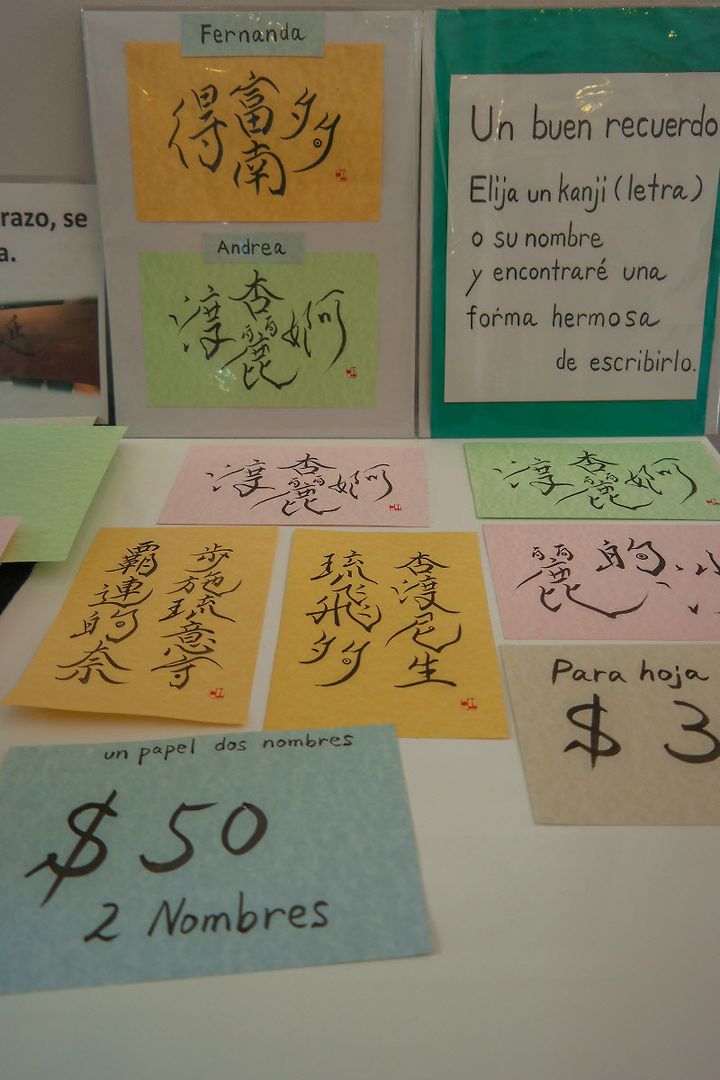 Fernanda
得富南多
Andrea
淳杏麗婀
Un buen recuerdo
Elija un kanji (letra)
o su nombre
y encontraré una
forma hermosa
de escribirlo.
razo, se
a.
淳杏麗婀
淳杏麗婀
歩施琉意守
覇連的奈
杏渡尼生
琉飛多
麗的
Para hoja
$ 3
un papel dos nombres
$ 50
2 Nombres